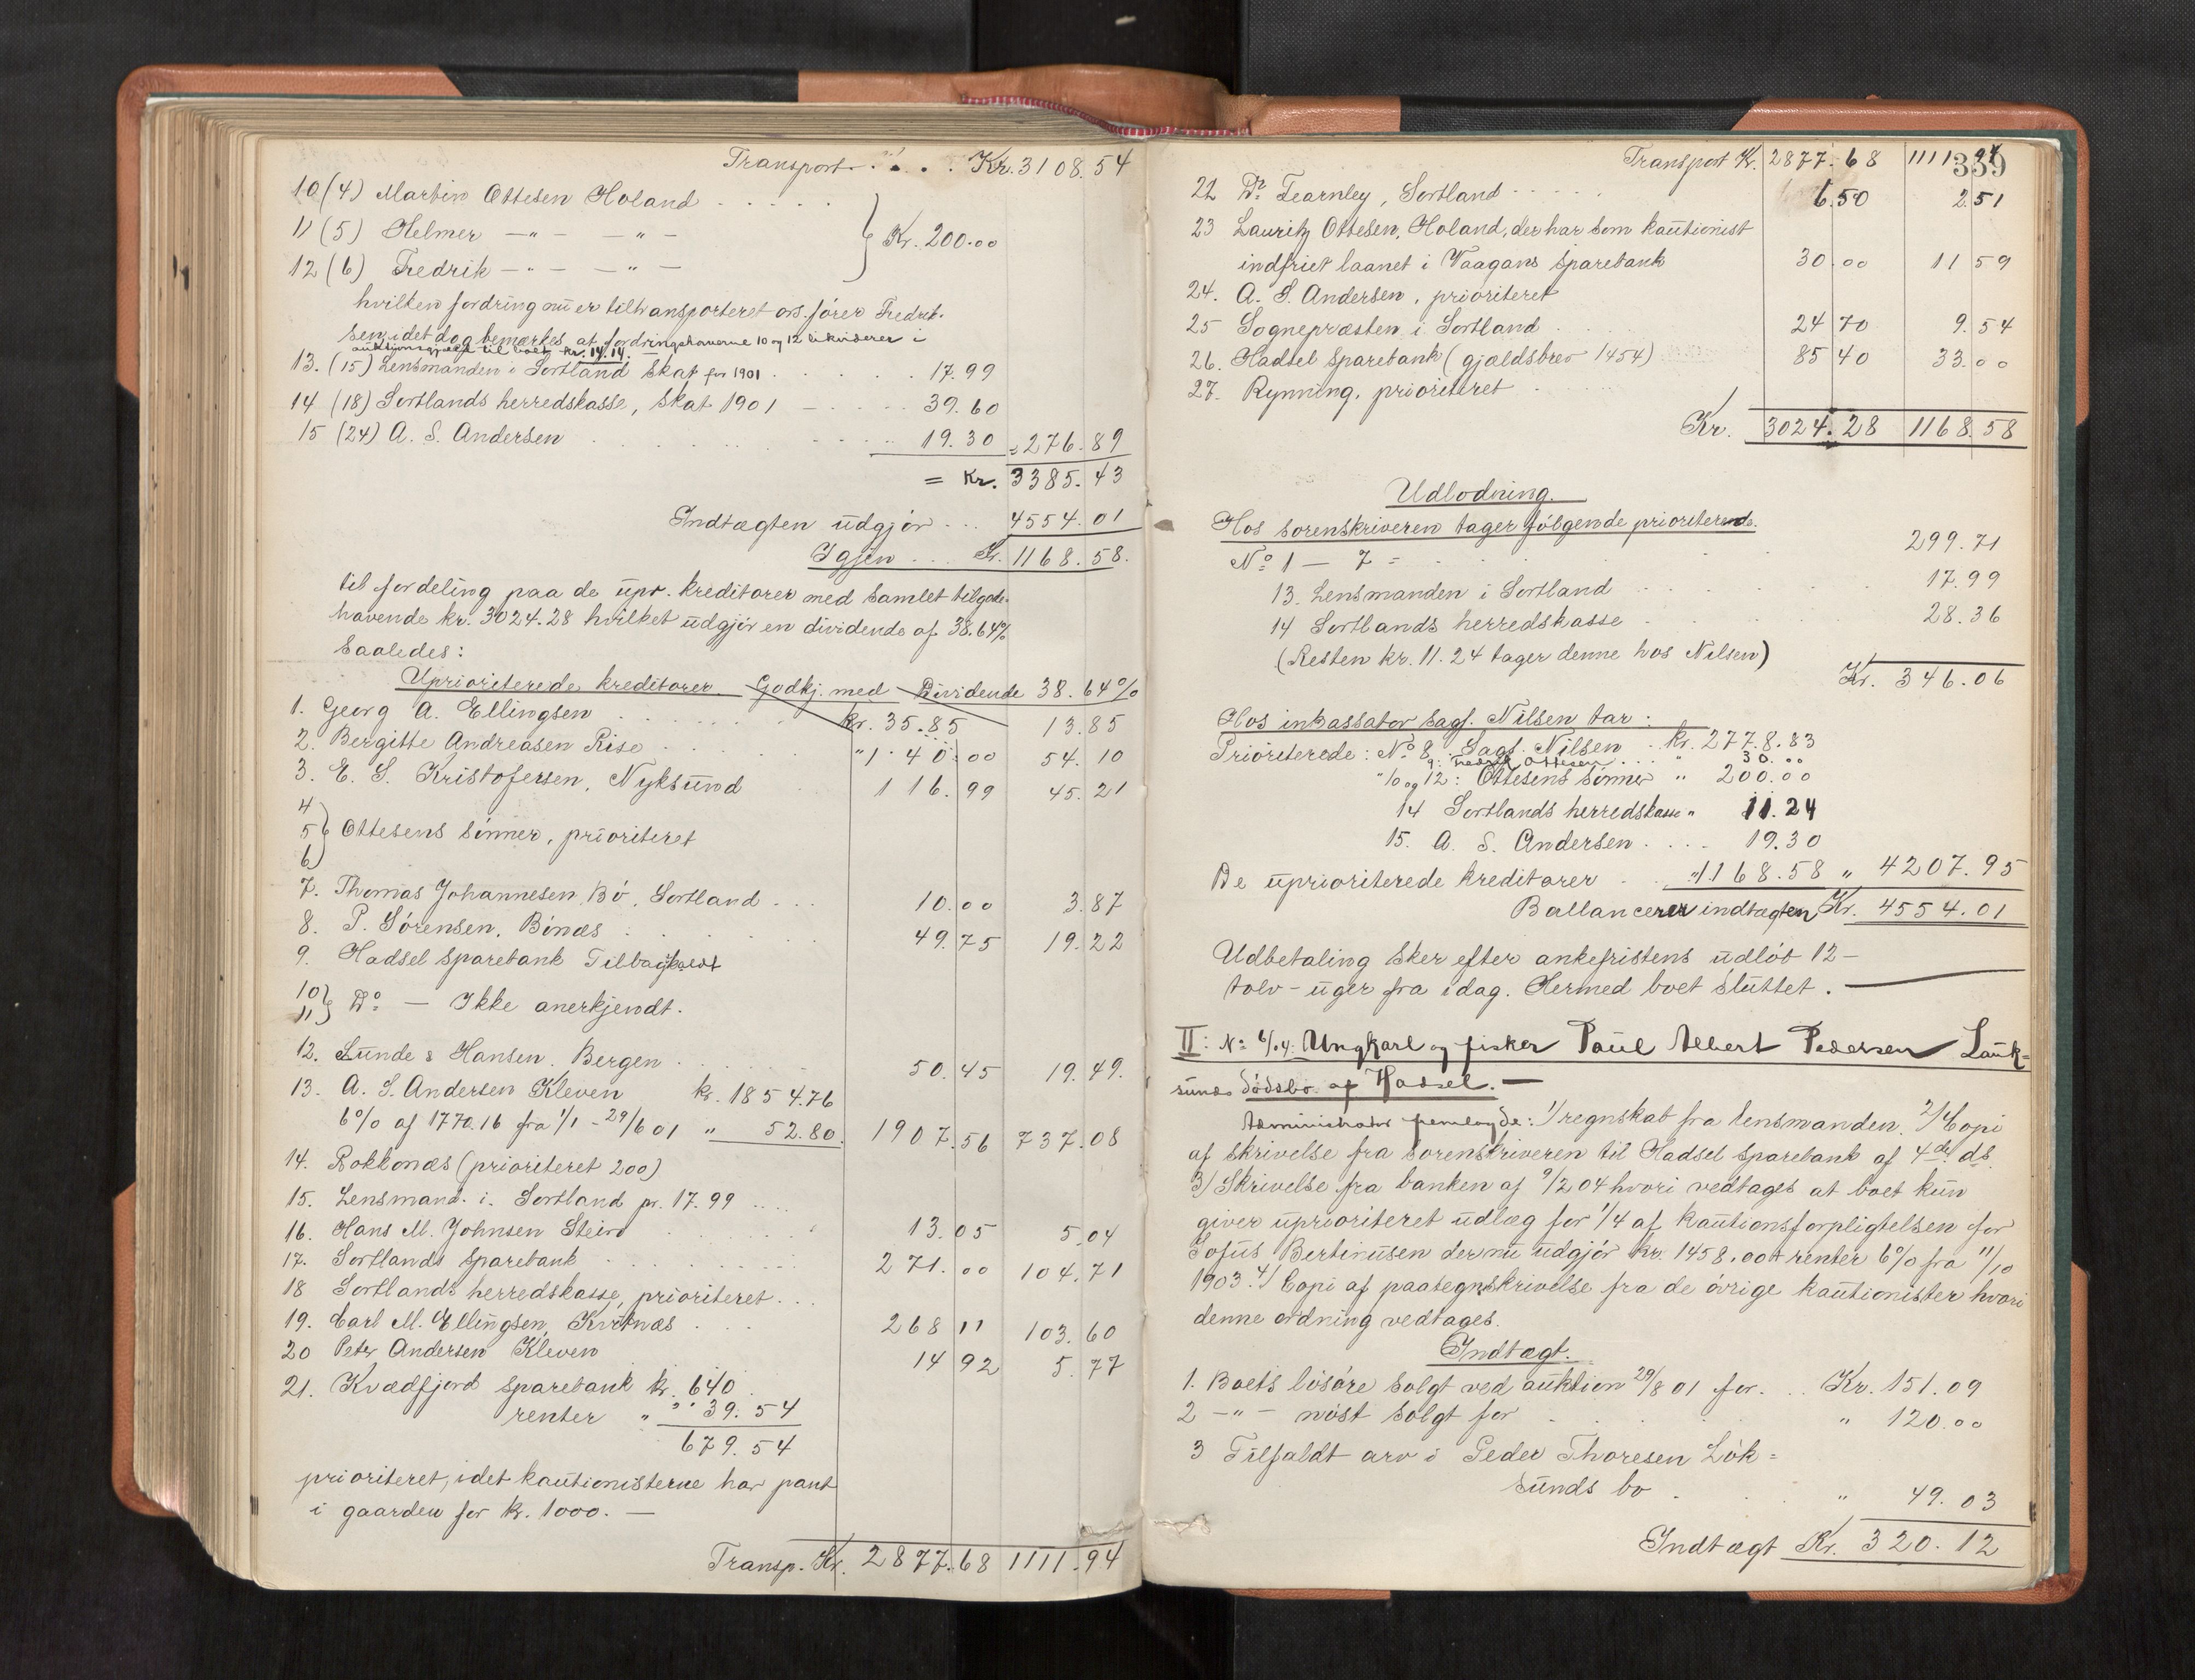 Transport . . . . Kr. 3108.54
10 (4) Martin Ottesen Holand . . . . .
11 (5) Helmer —"— —"—
12 (6) Fredrik —"— —"—
} Kr. 200.00
hvilken fordring nu er tiltransporteret ovs. fører Fredrik-
sen, idet dog bemærkes at fordringshaverne 10 og 12 likviderer i
auktionsgjæld til boet kr. 14.14. —
13. (15) Lensmanden i Sortland skat for 1901 . . . . . . 17.99
14 (18) Sortlands herredskasse, skat 1901 — . . . . . 39.60
15 (24) A. S. Andersen . . . . . . . . . 19.30 = 276.89
= Kr. 3385.43
Indtægten udgjør . . . 4554.01
Igjen . . . Kr. 1168.58.
til fordeling paa de upr. kreditorer med samlet tilgode-
havende kr. 3024.28 hvilket udgjør en dividende af 38.64%
saaledes:
Uprioriterede kreditorer Godkj. med Dividende 38.64%
1. Georg A. Ellingsen . . . . . . kr. 35.85 13.85
2. Bergitte Andreasen Rise . . . . " 140.00 54.10
3. E. S. Kristofersen, Nyksund 116.99 45.21
4
5 } Ottesens sønner, prioriteret
6
7. Thomas Johannesen, Bø, Sortland . . . 10.00 3.87
8. P. Sørensen, Bønæs . . . . . . 49.75 19.22
9. Hadsel sparebank Tilbagekaldt
10
11 } Do — Ikke anerkjendt.
12. Lunde & Hansen, Bergen . . . . . 50.45 19.49.
13. A. S. Andersen Kleven kr. 1854.76
6% af 1770.16 fra 1/1 - 29/6 01 " 52.80. 1907.56 737.08
14. Rokkonæs (prioriteret 200)
15. Lensmand. i. Sortland pr. 17.99 . . . .
16. Hans M. Johnsen Steiro . . . . . . 13.05 5.04
17. Sortlands sparebank . . . . . . . . 271.00 104.71
18 Sortlands herredskasse, prioriteret . . .
19. Carl M. Ellingsen, Kvitnæs . . . 268 11 103.60
20 Peter Andersen Kleven 14 92 5.77
21. Kvædfjord sparebank kr. 640
renter " " 39.54
679.54
prioriteret, idet kautionisterne har pant
i gaarden for kr. 1000. —
Transp. Kr. 2877.68 1111.94
339
Transport Kr. 2877.68 1111.94
22 Dr. Fearnley, Sortland . . . . . 6.50 2.51
23 Lauritz Ottesen, Holand, der har som kautionist
indfriet laanet i Vaagans sparebank 30.00 11 59
24. A. S. Andersen, prioriteret
25 Sognepræsten i Sortland . . . . . 24 70 9.54
26. Hadsel sparebank (gjældsbrev 1454) 85 40 33.00
27. Rynning, prioriteret . . . . .
Kr. 3024.28 1168.58
Udlodning.
Hos sorenskriveren tager følgende prioriterede.
No 1 — 7 = . . . . . . 299.71
13. Lensmanden i Sortland . . . . . 17.99
14 Sortlands herredskasse . . . . . 28.36
(Resten kr. 11.24 tager denne hos Nilsen)
Kr. 346.06
Hos inkassator sagf. Nilsen tar:
Prioriterede: No 8. Sagf. Nilsen . kr. 2778.83
9. Ottesen . . . " 30.00
" 10 og 12: Ottesens sønner " 200.00
14 Sortlands herredskasse " 11.24
15. A. S. Andersen . . . . 19.30
De uprioriterede kreditorer . . " 1168.58 " 4207.95
Ballancerer indtægten Kr. 4554.01
Udbetaling sker efter ankefristens udløb 12 —
tolv - uger fra idag. Hermed boet sluttet. —
II: No 6/04. Ungkarl og fisker Paul Albert Pedersen Lauk=
sunds dødsbo af Hadsel. —
Administrator fremlagde: 1/ regnskab fra lensmanden. 2/ Copi
af skrivelse fra sorenskriveren til Hadsel sparebank af 4de ds.
3/ Skrivelse fra banken af 9/2 04 hvori vedtages at boet kun
giver uprioriteret udlæg for 1/4 af kautionsforpligtelsen for
Sofus Bertinusen der nu udgjør kr. 1458.00 + renter 6% fra 11/10
1903. 4/ Copi af paategn.skrivelse fra de øvrige kautionister hvori
denne ordning vedtages.
Indtægt.
1. Boets løsøre solgt ved auktion 29/8 01 for. . . Kr. 151.09
2 —"— nøst solgt for . . . . . " 120.00
3 Tilfaldt arv i Peder Thoresen Løk=
sunds bo . . . . " 49.03
Indtægt Kr. 320.12